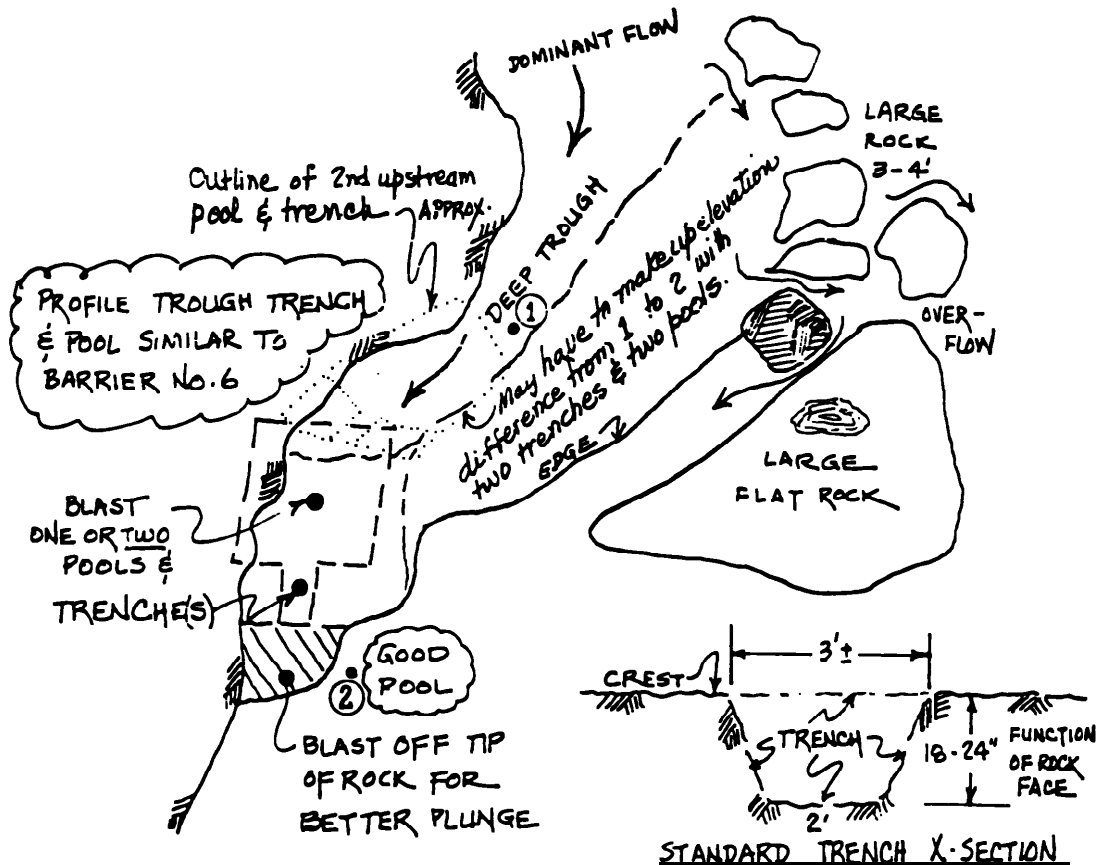 DOMINANT FLOW
LARGE
ROCK
3-4'
Outline of 2nd upstream
pool & trench APPROX.
DEEP TROUGH
1
PROFILE TROUGH TRENCH
& POOL SIMILAR TO
BARRIER NO.6
May have to make up elevation
difference from 1 to 2 with
two trenches & two pools.
EDGE
OVER-
FLOW
LARGE
FLAT ROCK
BLAST
ONE OR TWO
POOLS &
TRENCH(S)
GOOD
POOL
2
BLAST OFF TIP
OF ROCK FOR
BETTER PLUNGE
3'±
CREST
TRENCH
18-24"
FUNCTION
OF ROCK
FACE
2'
STANDARD TRENCH X-SECTION